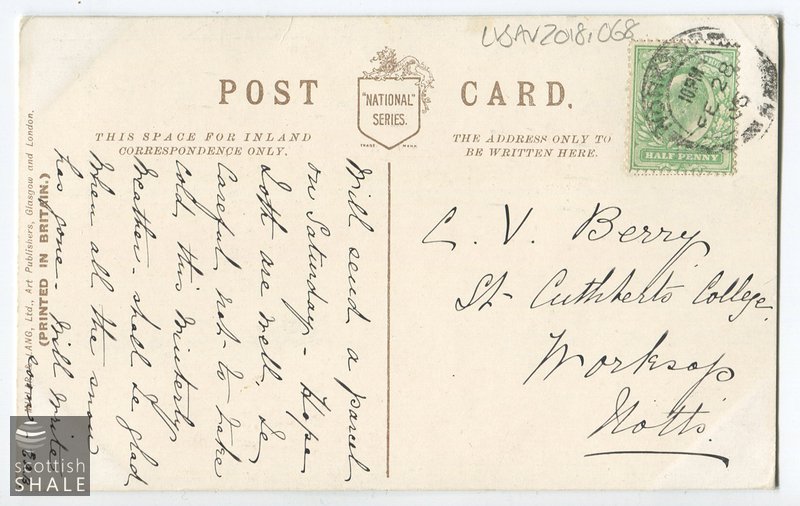 USAV2018.068
POST CARD.
"NATIONAL"
SERIES.
TRADE MARK
THIS SPACE FOR INLAND
CORRESPONDENCE ONLY.
THE ADDRESS ONLY TO
BE WRITTEN HERE.
HALF PENNY
10 PM
FE 28
Will send a parcel
on Saturday - Hope
both are well, be
Careful not to take
cold this Winterly
Weather - shall be glad
When all the snow
has gone - Will write
C. V. Berry
St- Cuthbert's College,
Worksop
Notts.
LANG, Ltd., Art Publishers, Glasgow and London.
(PRINTED IN BRITAIN.)
scottish
SHALE